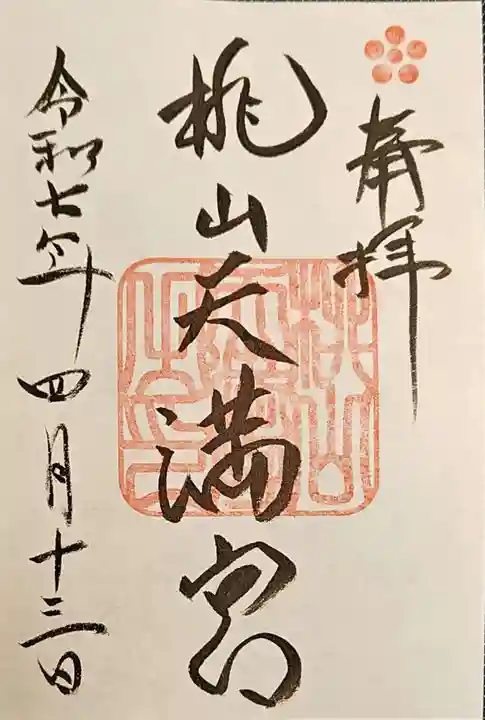 奉拝
桃山天満宮
令和七年四月十三日